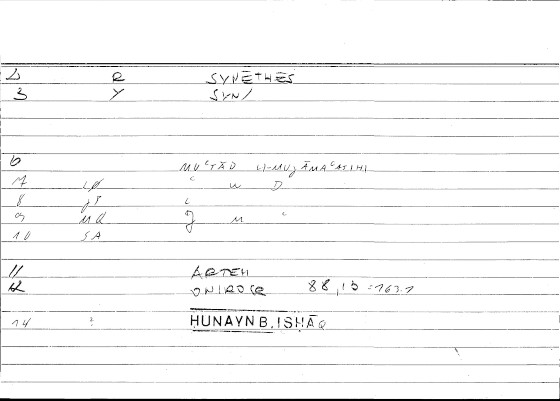 2 R SYNĒTHĒS
3 Y SYN/
6 MUʿTĀD LI-MUJĀMAʿATIHI
7 LP ʿ W D
8
9 MQ J M ʿ
10 SA
11 ARTEM
12 ONIROCR 88,15 = 163.1
14 HUNAYN B. ISHĀQ